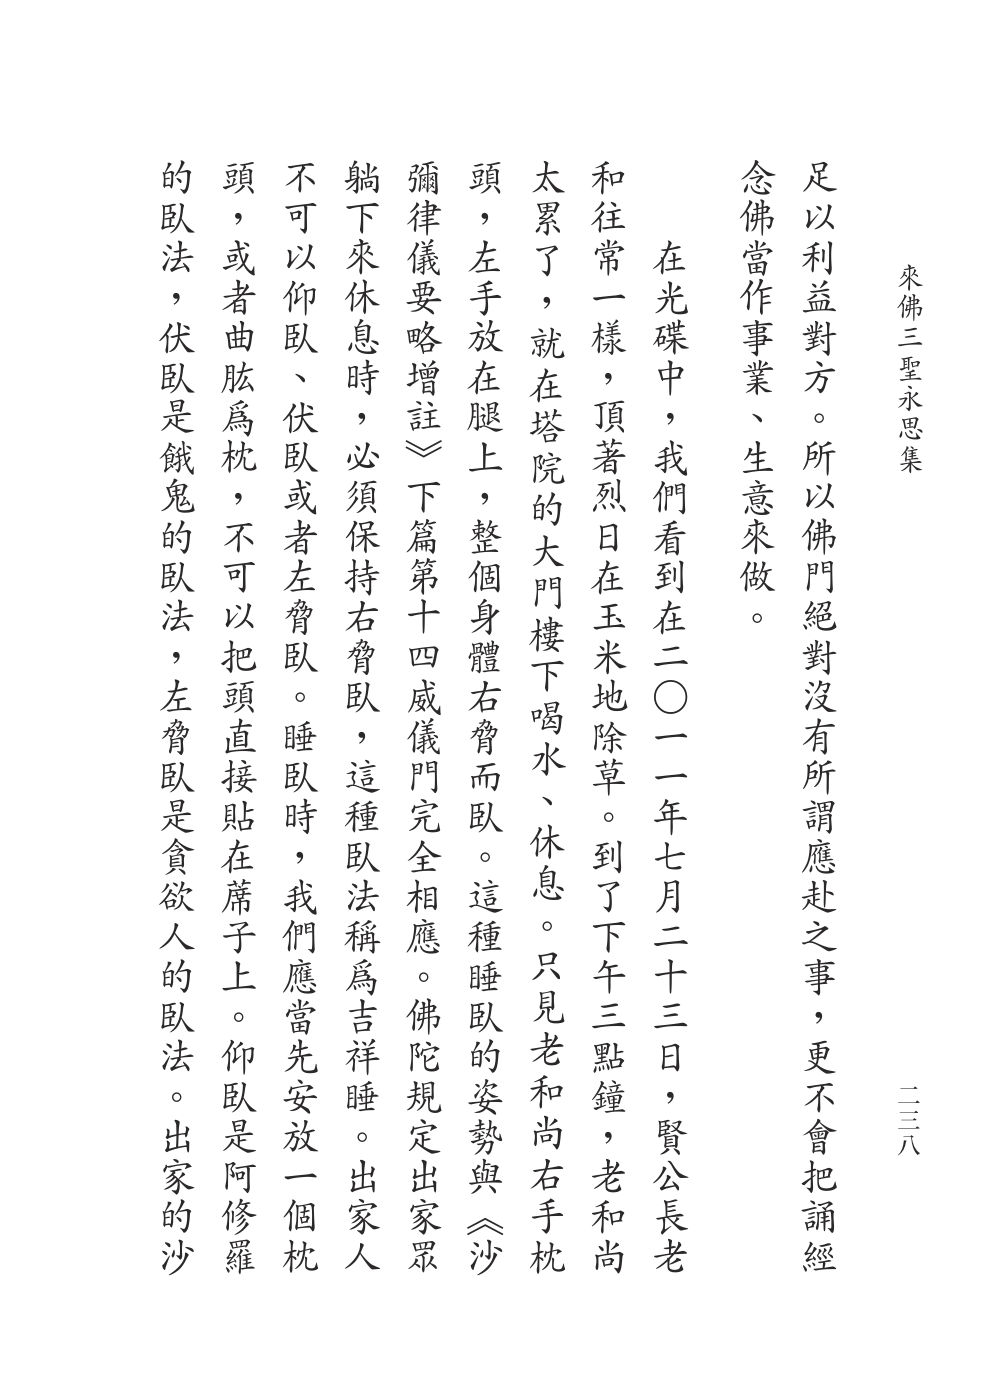 來佛三聖永思集
二三八
足以利益對方。所以佛門絕對沒有所謂應赴之事，更不會把誦經
念佛當作事業、生意來做。
在光碟中，我們看到在二〇一一年七月二十三日，賢公長老
和往常一樣，頂著烈日在玉米地除草。到了下午三點鐘，老和尚
太累了，就在塔院的大門樓下喝水、休息。只見老和尚右手枕
頭，左手放在腿上，整個身體右脅而臥。這種睡臥的姿勢與《沙
彌律儀要略增註》下篇第十四威儀門完全相應。佛陀規定出家眾
躺下來休息時，必須保持右脅臥，這種臥法稱爲吉祥睡。出家人
不可以仰臥、伏臥或者左脅臥。睡臥時，我們應當先安放一個枕
頭，或者曲肱爲枕，不可以把頭直接貼在蓆子上。仰臥是阿修羅
的臥法，伏臥是餓鬼的臥法，左脅臥是貪欲人的臥法。出家的沙